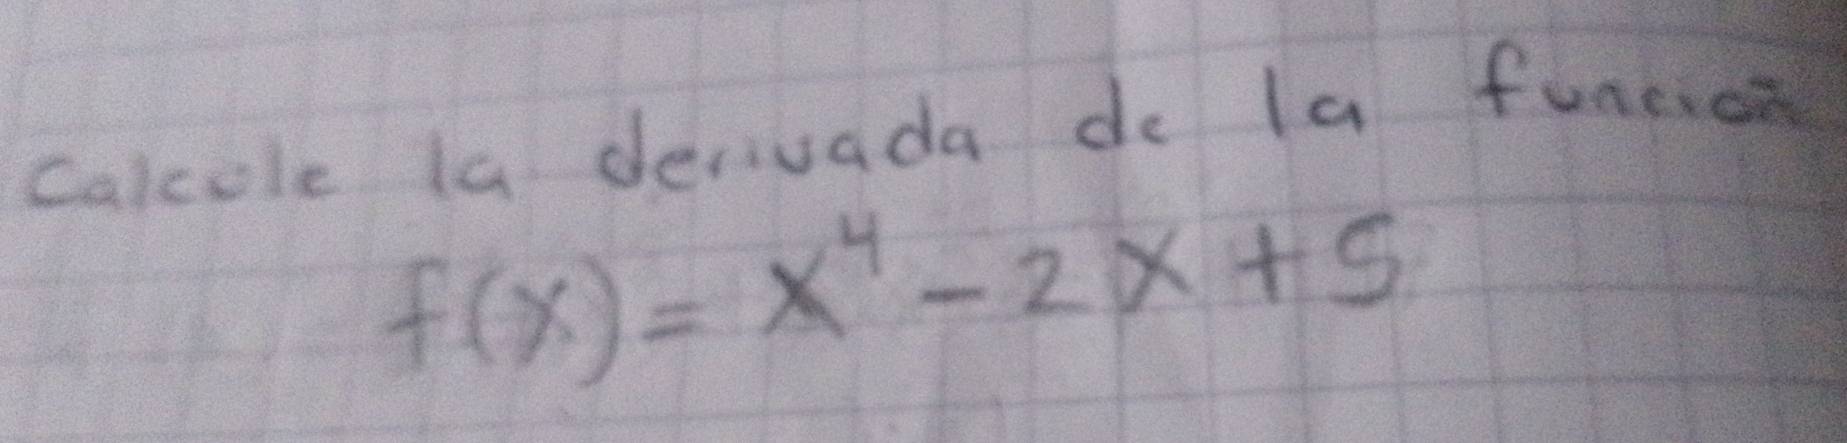 Calcule la derivada de la función
f(x) = x⁴ - 2x + 5